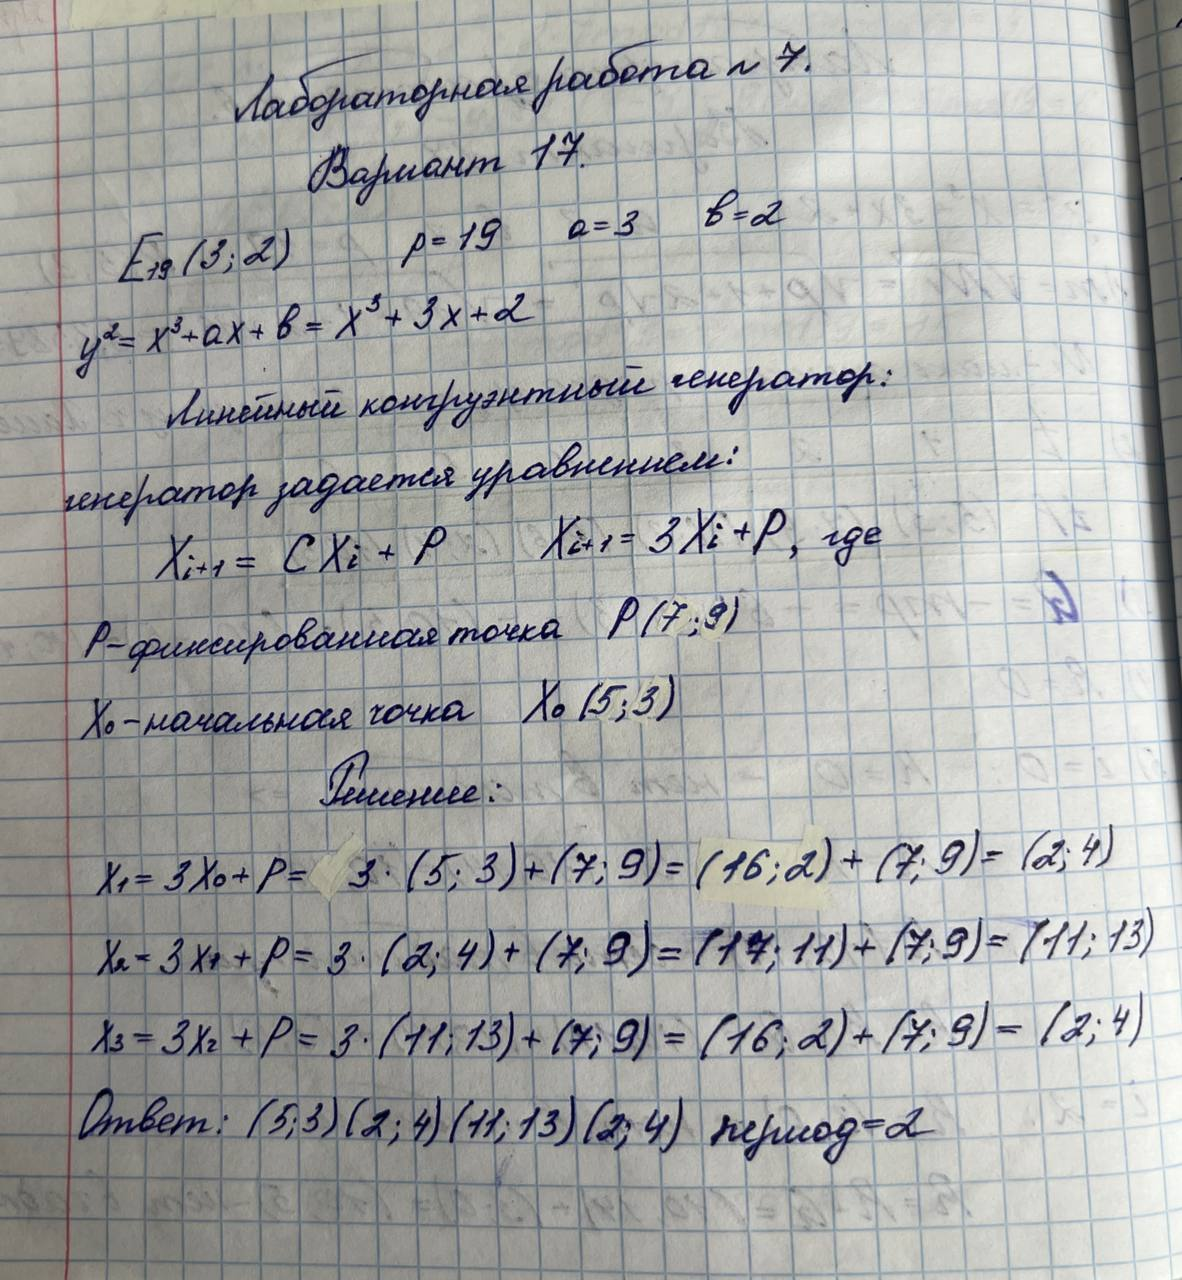 Лабораторная работа N 7.
Вариант 17.
E₁₉(3;2) p=19 a=3 b=2
y²= x³+ax+b = x³+3x+2
Линейный конгруэнтный генератор:
генератор задается уравнением:
Xi+1 = CXi + P Xi+1 = 3Xi+P, где
P-фиксированная точка P(7;9)
X₀-начальная точка X₀(5;3)
Решение:
X₁=3X₀+P= 3·(5;3)+(7;9)=(16;2)+(7;9)=(2;4)
X₂=3X₁+P=3·(2;4)+(7;9)=(17;11)+(7;9)=(11;13)
X₃=3X₂+P=3·(11;13)+(7;9)=(16;2)+(7;9)=(2;4)
Ответ: (5;3)(2;4)(11;13)(2;4) период=2